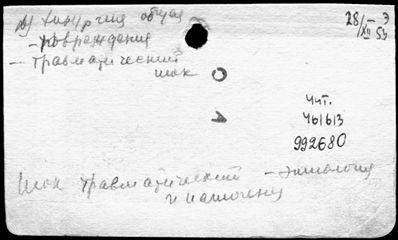 а) Хирургия общая
28/XII-53
- повреждения
- травматический
шок
Чит.
46163
992680
Шок травматический - этиология
и патогенез